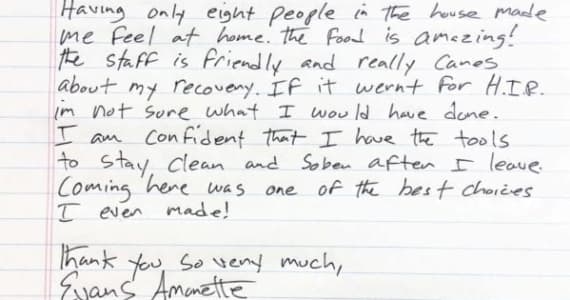 Having only eight people in the house made
me feel at home. the food is amazing!
the staff is friendly and really cares
about my recovery. If it wernt for H.I.R.
im not sure what I would have done.
I am confident that I have the tools
to stay clean and sober after I leave.
Coming here was one of the best choices
I ever made!
Thank you so very much,
Evans Amonette